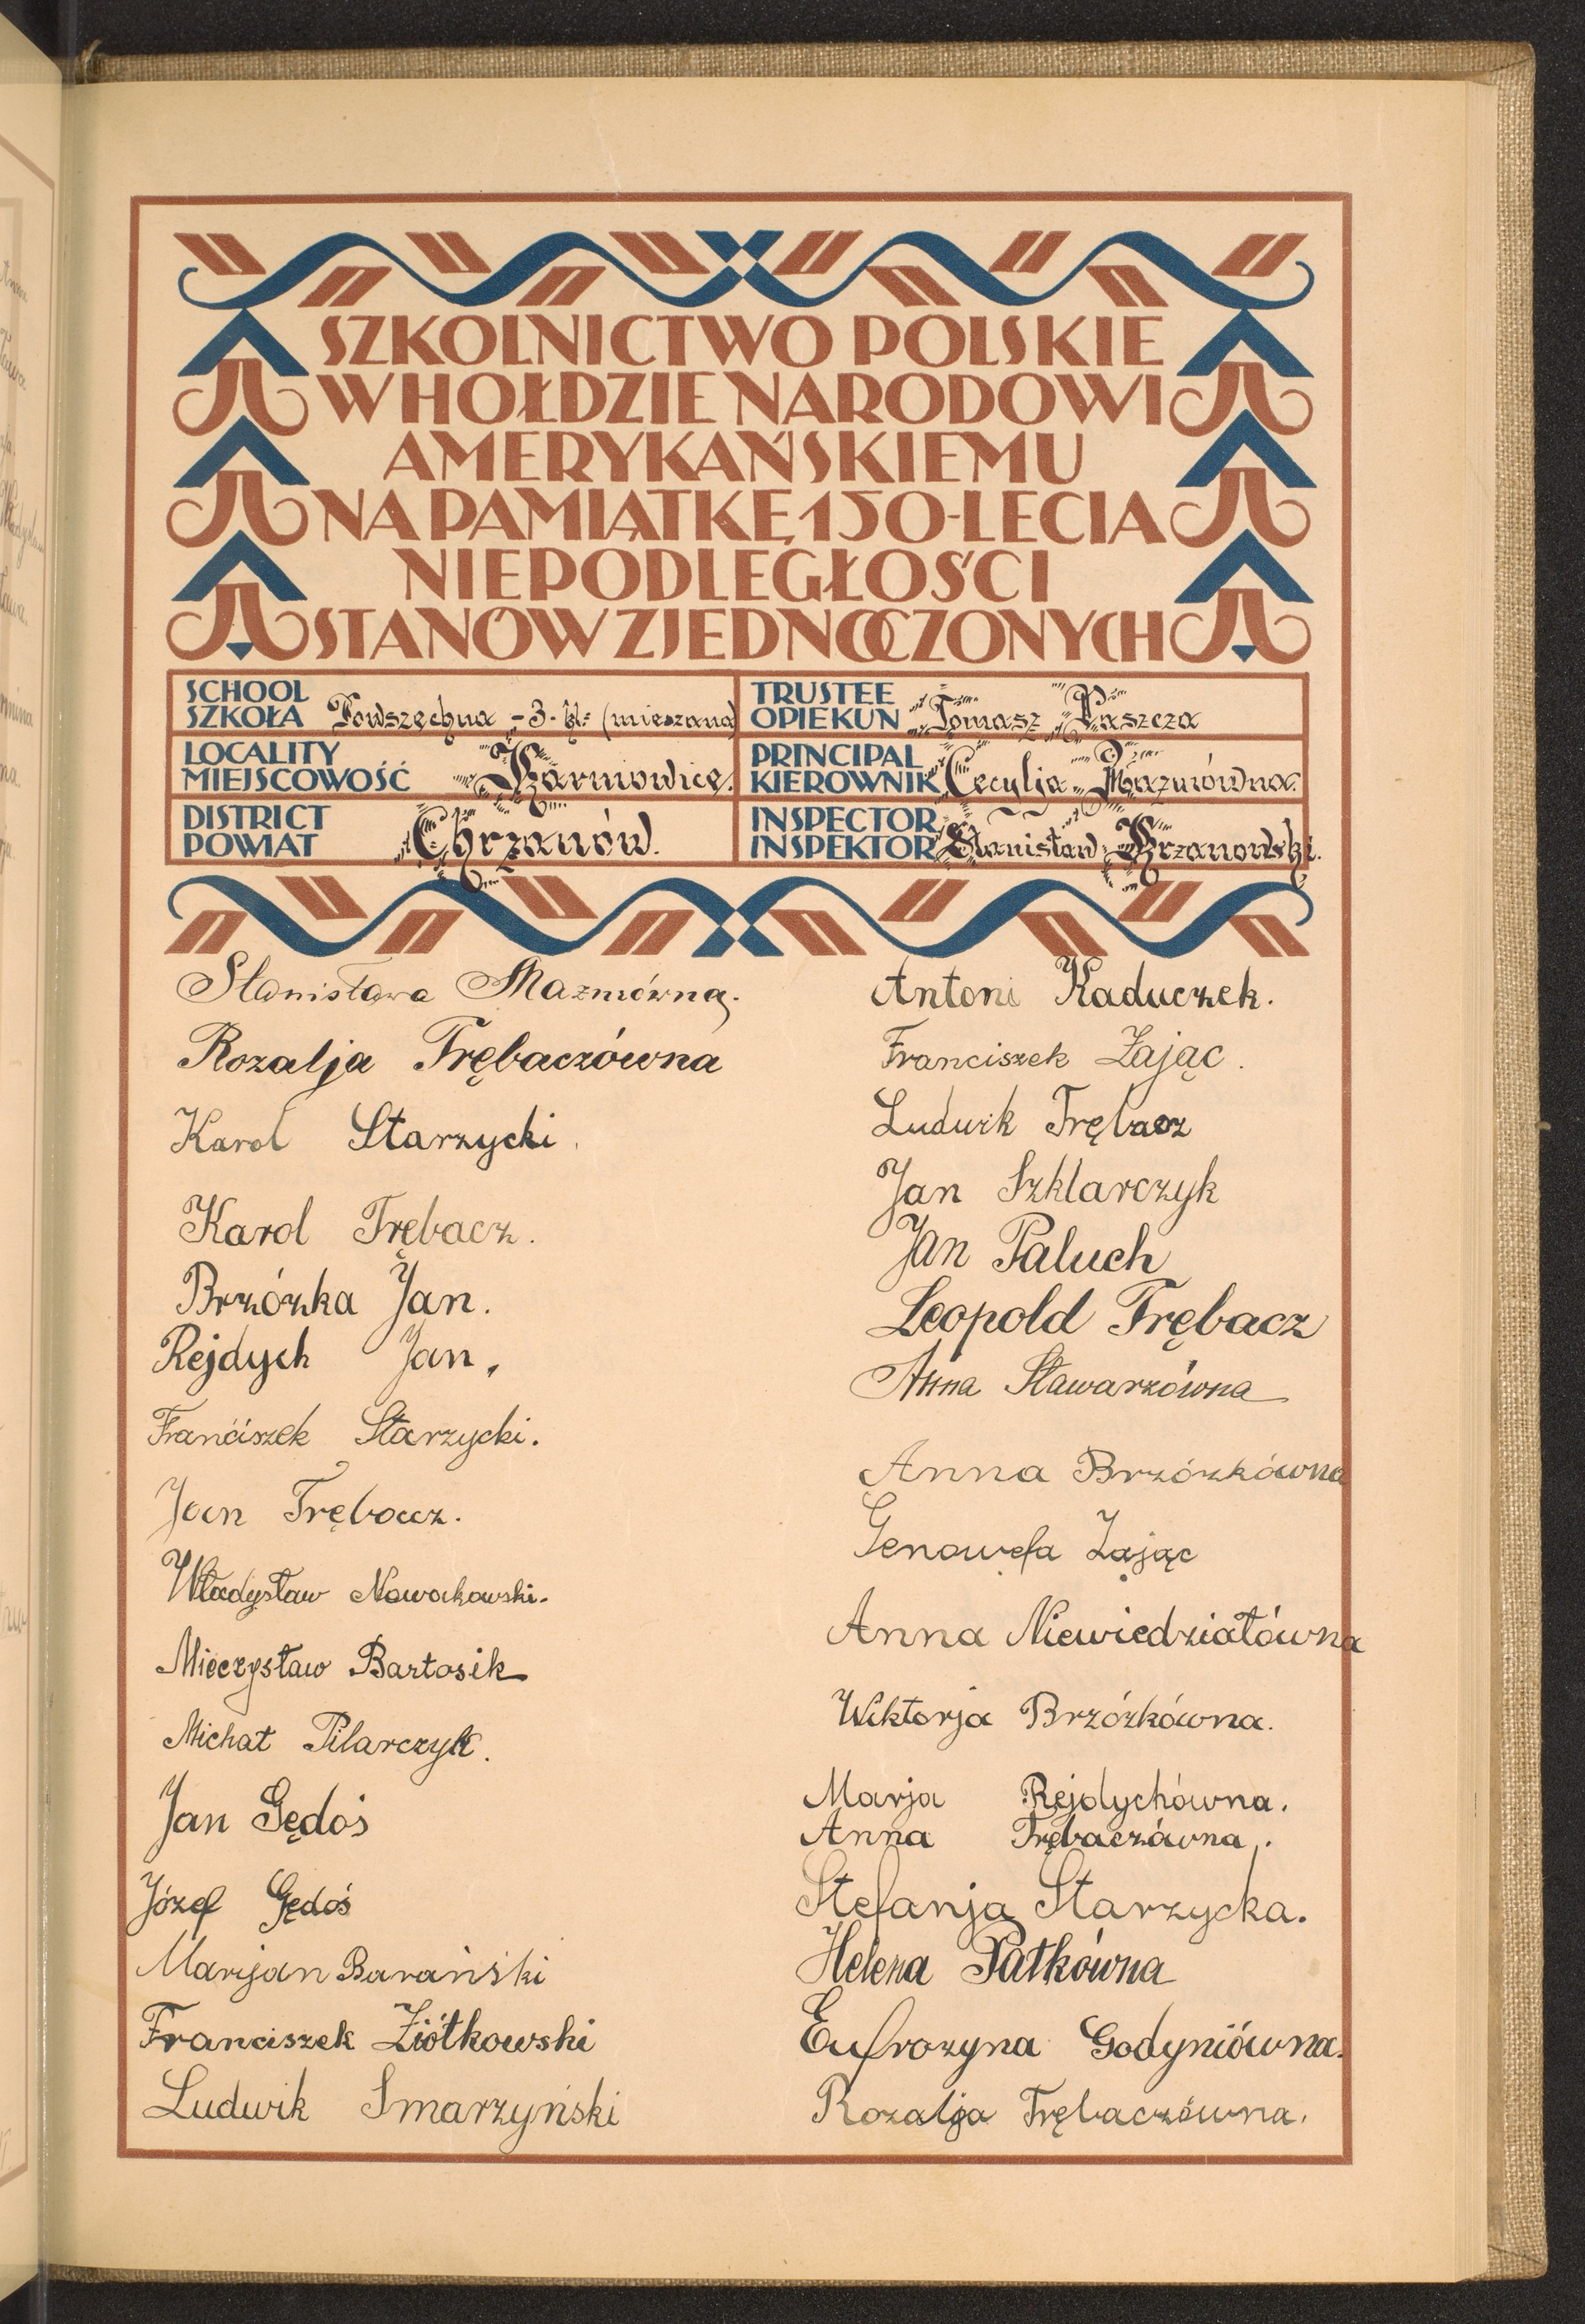 SZKOLNICTWO POLSKIE
W HOŁDZIE NARODOWI
AMERYKAŃSKIEMU
NA PAMIĄTKĘ 150-LECIA
NIEPODLEGŁOŚCI
STANÓW ZJEDNOCZONYCH
SCHOOL
SZKOŁA Powszechna - 3 - kl: (mieszana)
TRUSTEE
OPIEKUN Tomasz Paszcza
LOCALITY
MIEJSCOWOŚĆ Karniowice.
PRINCIPAL
KIEROWNIK Cecylja Mazmówna.
DISTRICT
POWIAT Chrzanów.
INSPECTOR
INSPEKTOR Stanisław Krzanowski.
Stanisława Mazmówna.
Rozalja Trębaczówna
Karol Starzycki.
Karol Trębacz.
Brzózka Jan.
Rejdych Jan.
Franciszek Starzycki.
Jan Trębacz.
Władysław Nowakowski.
Mieczysław Bartosik
Michał Pilarczyk.
Jan Gędoś
Józef Gędoś
Marjan Barański
Franciszek Ziółkowski
Ludwik Smarzyński
Antoni Kaduczek.
Franciszek Zając.
Ludwik Trębacz
Jan Szklarczyk
Jan Paluch
Leopold Trębacz
Anna Sławarzówna
Anna Brzózkówna
Genowefa Zając
Anna Niewiedziałówna
Wiktorja Brzózkówna.
Marja Rejdychówna.
Anna Trębaczówna.
Stefanja Starzycka.
Helena Patkówna
Eufrozyna Godyniówna.
Rozalja Trębaczówna.